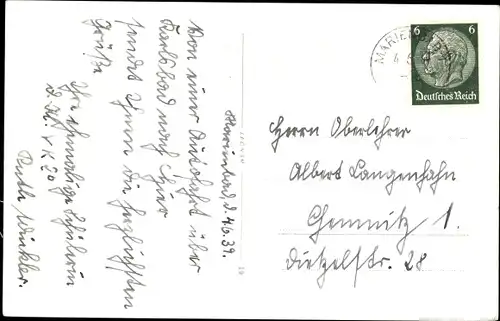 Marienbad, d. 4.6.39.
Von einer Autofahrt über
Karlsbad nach hier
sendet Ihnen die herzlichsten
Grüße
Ihre ehemalige Schülerin
Ruth Winkler.
MARIENBAD
6 6
Deutsches Reich
Herrn Oberlehrer
Albert Langenhahn
Chemnitz 1.
Dietzelstr. 28